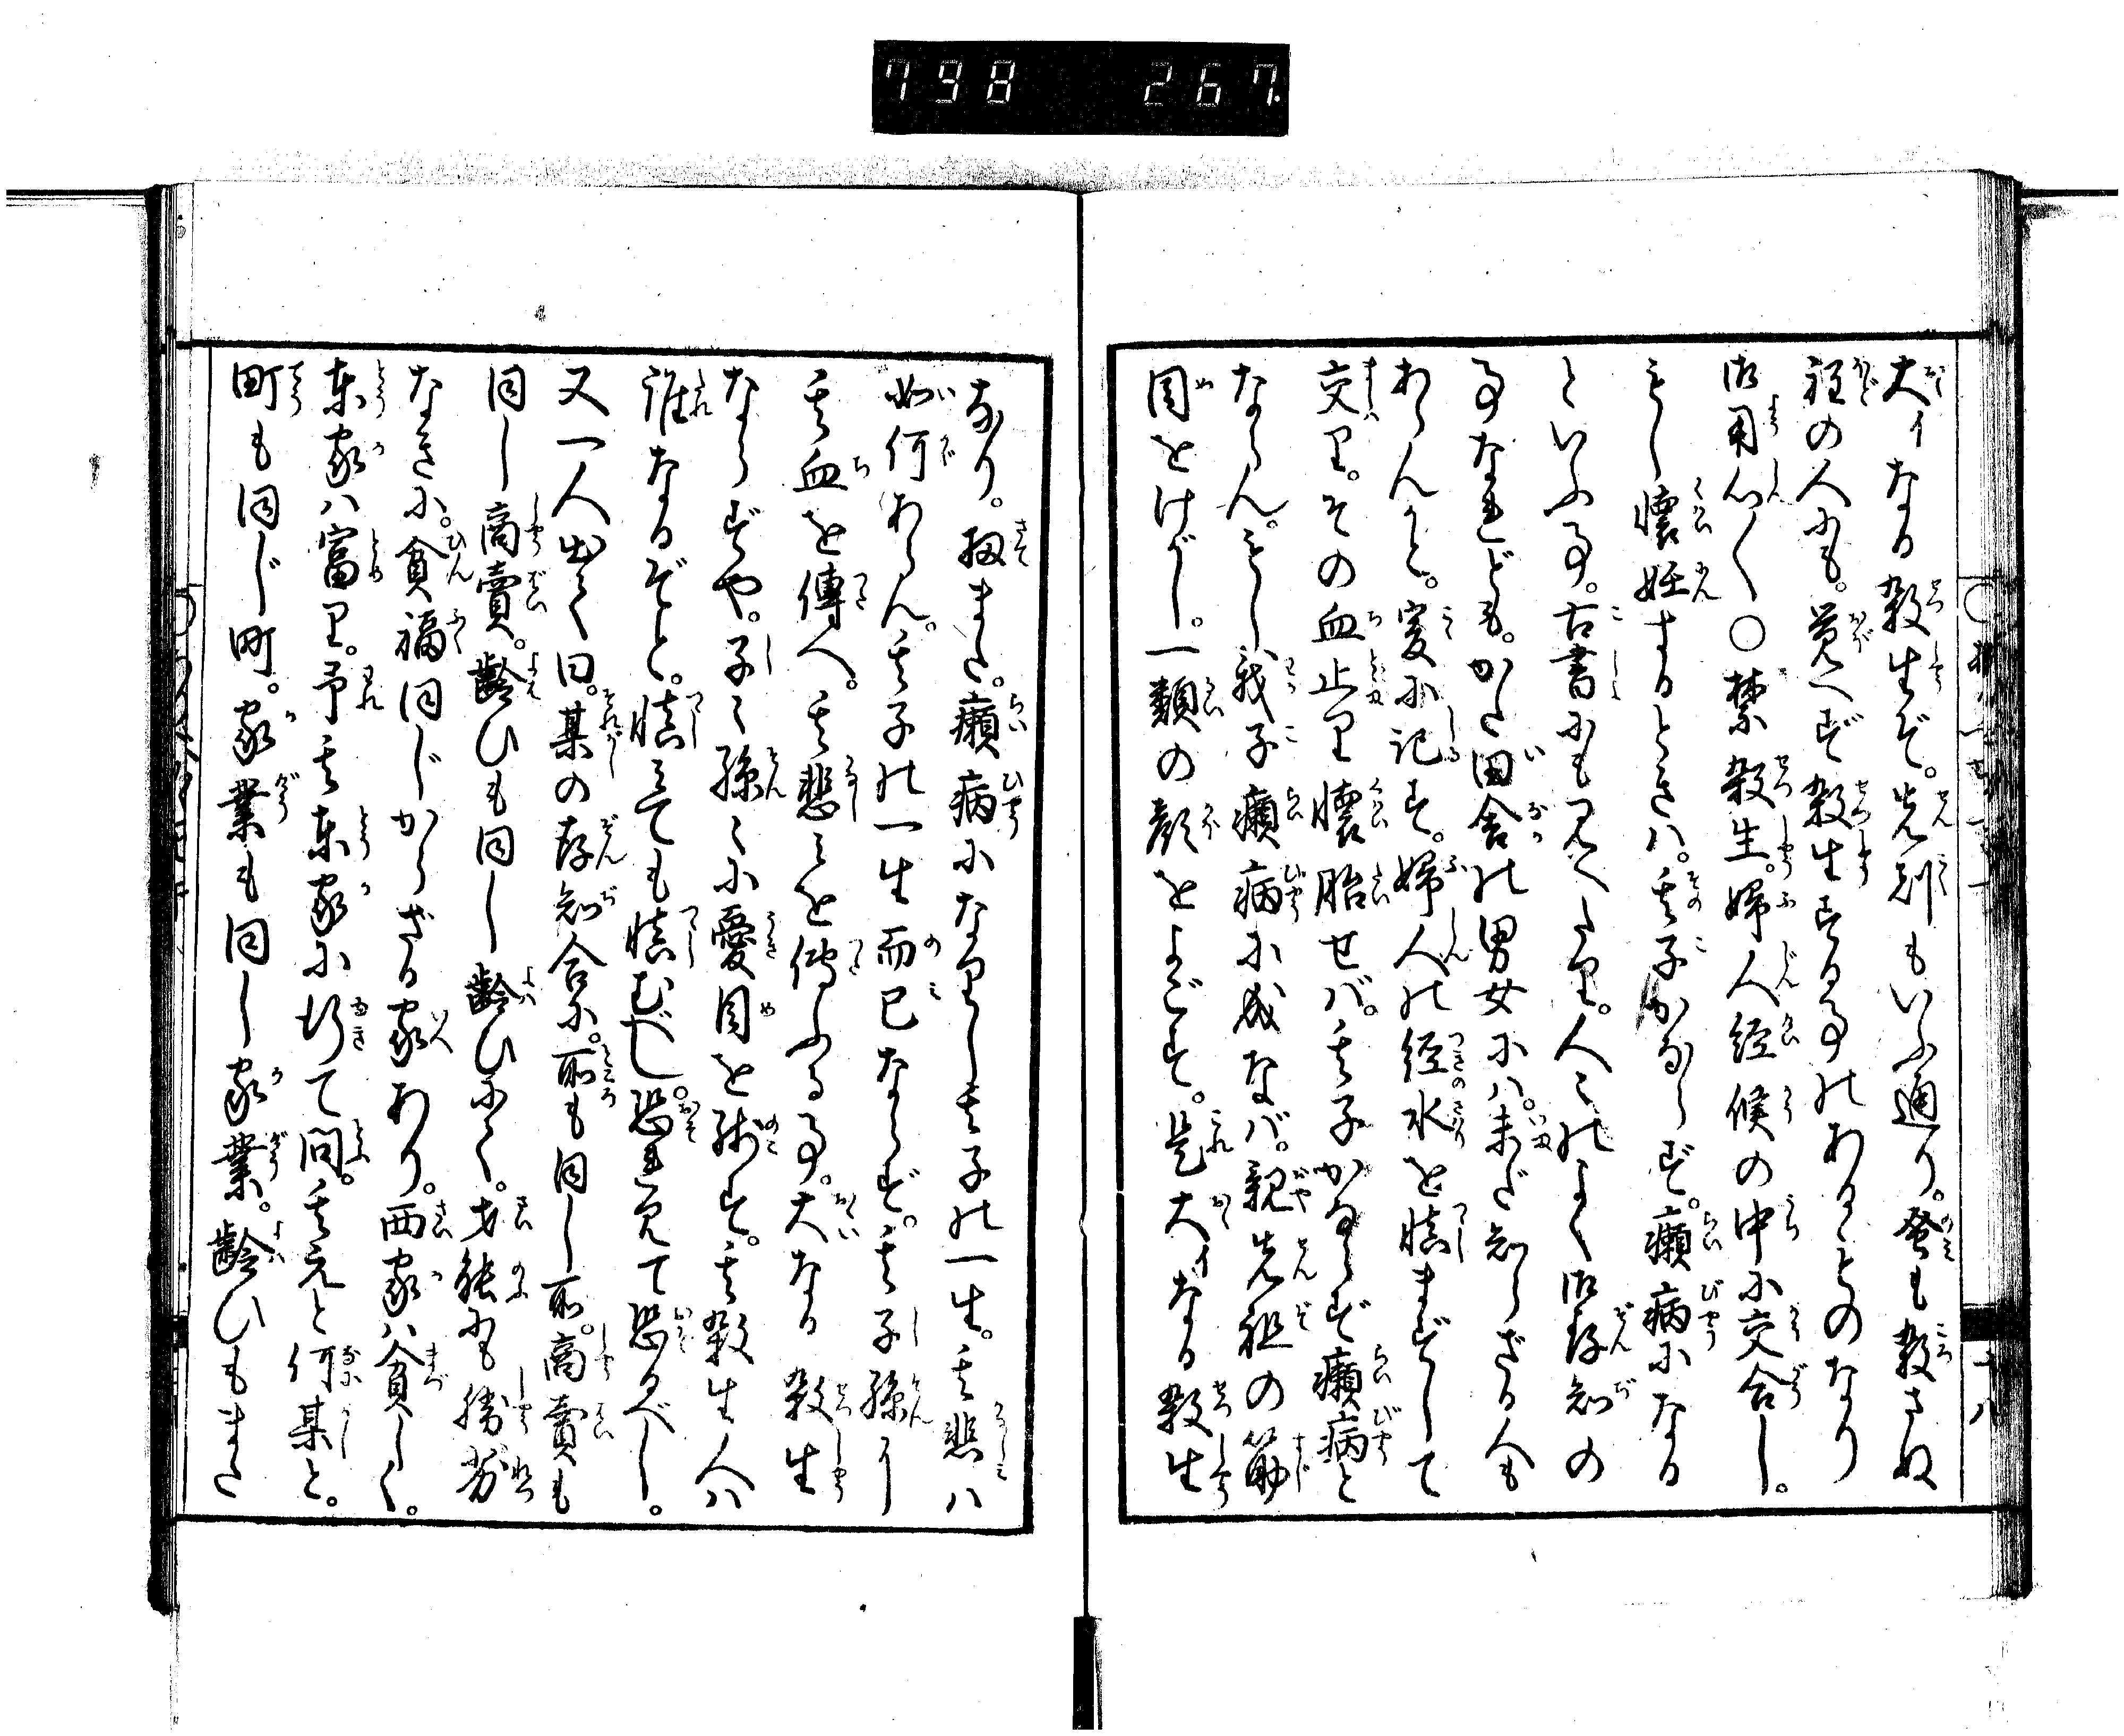 798 267
大イなる殺生ぞ。先刻もいふ通り。蚤も殺さぬ
程の人にも。覚へず殺生する事のあるものなり
御用心〳〵○禁殺生。婦人経候の中に交合し。
もし懐妊するときハ。其子かならず。癩病になる
といふ事。古書にも見へたり。人々のよく御存知の
事なれども。かた田舎の男女にハ。未だ知らざる人も
あらんかと。爰に記す。婦人の経水を慎まずして
交り。その血止り懐胎せバ。其子かならず癩病と
ならん。もし我子癩病に成なバ。親先祖の筋
目をけがし。一類の顔をよごす。是大イなる殺生
なり。扨また。癩病になりし其子の一生。其悲ハ
如何あらん。其子の一生而已ならず。其子孫に
其血を傳へ。其悲ミを傳ふる事。大なる殺生
ならずや。子々孫々に憂目を残す。其殺生人ハ
誰なるぞと。慎ミても慎むべし。恐れ見て恐るべし。
又一人出て曰。某の存知合に。所も同し所。商賣も
同し商賣。齢ひも同し齢ひにて。才能にも勝劣
なきに。貧福同じからざる家あり。西家ハ貧しく。
東家ハ富り。予其東家に行て問。其元と何某と。
町も同じ町。家業も同し家業。齢ひもまた
十八